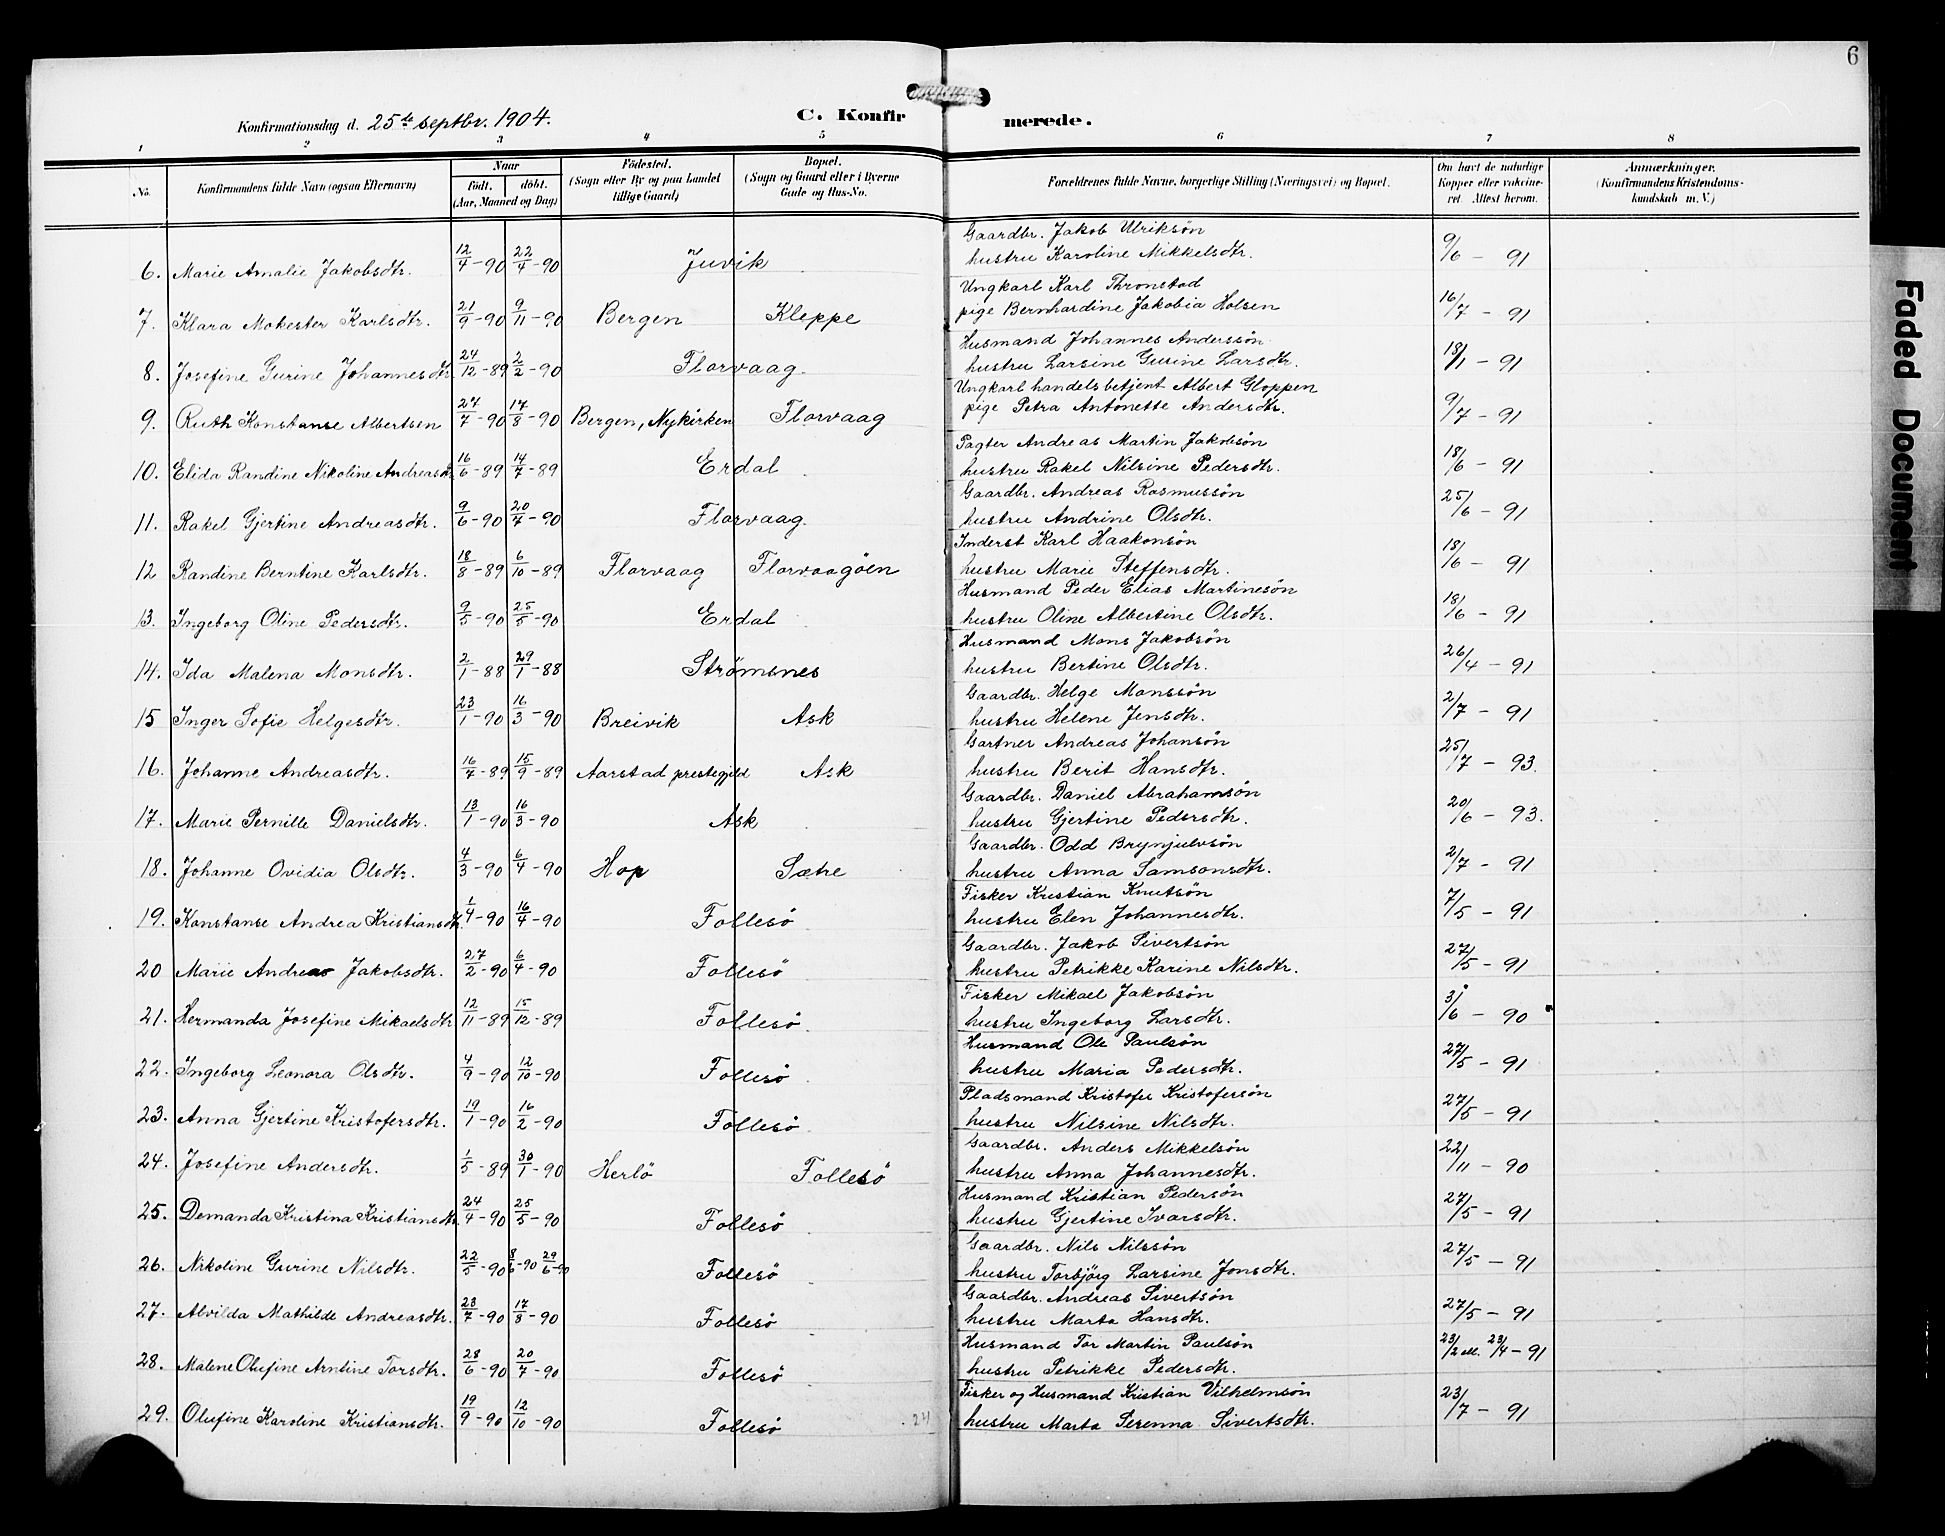 6
Konfirmationsdag d. 25de septbr. 1904.
C. Konfirmerede.
1 2 3 4 5 6 7 8
No.
Konfirmandens fulde Navn (ogsaa Efternavn)
Naar
født. døbt.
(Aar, Maaned og Dag)
Fødested.
(Sogn eller By og paa Landet
tillige Gaard)
Bopæl.
(Sogn og Gaard eller i Byerne
Gade og Hus-No.
Forældrenes fulde Navne, borgerlige Stilling (Næringsvei) og Bopæl.
Om havt de naturlige
Kopper eller vakcine-
ret. Attest herom.
Anmærkninger.
(Konfirmandens Kristendoms-
kundskab m. V.)
Gaardbr. Jakob Ulriksøn
6. Marie Amalie Jakobsdtr. 12/4-90 22/4-90 Juvik hustru Karoline Mikkelsdtr. 9/6 - 91
Ungkarl Karl Thronstad
7. Klara Mokester Karlsdtr. 21/9-90 9/11-90 Bergen Kleppe pige Bernhardine Jakobia Holsen 16/7 - 91
Husmand Johannes Anderssøn
8. Josefine Gurine Johannesdtr 24/12-89 2/2-90 Florvaag. hustru Larsine Gurine Larsdtr. 18/1 - 91
Ungkarl handelsbetjent Albert Gloppen
9. Ruth Konstanse Albertsen 27/7-90 17/8-90 Bergen, Nykirken Florvaag pige Petra Antonette Andersdtr. 9/7 - 91
Pagter Andreas Martin Jakobsøn
10. Elida Randine Nikoline Andreasdtr 16/6-89 14/7-89 Erdal hustru Rakel Nilsine Pedersdtr. 18/6 - 91
Gaardbr. Andreas Rasmussøn
11. Rakel Gjertine Andreasdtr. 9/6-90 20/7-90 Florvaag. hustru Andrine Olsdtr. 25/6 - 91
Inderst Karl Haakonsøn
12 Randine Berntine Karlsdtr. 18/8-89 6/10-89 Florvaag Florvaagöen hustru Marie Steffensdtr. 18/6 - 91
Husmand Peder Elias Martinesøn
13. Ingeborg Oline Pedersdtr. 9/5-90 25/5-90 Erdal hustru Oline Albertine Olsdtr. 18/6 - 91
Husmand Mons Jakobsøn
14. Ida Malena Monsdtr. 2/1-88 29/1-88 Strømsnes hustru Bertine Olsdtr. 26/4 - 91
Gaardbr. Helge Monssøn
15 Inger Sofie Helgesdtr. 23/1-90 16/3-90 Breivik Ask hustru Helene Jensdtr. 2/7 - 91
Gartner Andreas Johansøn
16. Johanne Andreasdtr. 16/7-89 15/9-89 Aarstad prestegjeld Ask hustru Berit Hansdtr. 25/7 - 93.
Gaardbr. Daniel Abrahamsøn
17. Marie Pernille Danielsdtr. 13/1-90 16/3-90 Ask hustru Gjertine Pedersdtr. 20/6 - 93.
Gaardbr. Odd Brynjulvsøn
18. Johanne Ovidia Olsdtr. 4/3-90 6/4-90 Hop Sætre hustru Anna Samsonsdtr. 2/7 - 91
Fisker Kristian Knutsøn
19. Konstanse Andrea Kristiansdtr. 1/4-90 16/4-90 Follesö hustru Elen Johannesdtr. 7/5 - 91
Gaardbr. Jakob Sivertsøn
20 Marie Andreas Jakobsdtr. 27/2-90 6/4-90 Follesö hustru Petrikke Karine Nilsdtr. 27/5 - 91
Fisker Mikael Jakobsøn
21. Hermanda Josefine Mikaelsdtr 12/11-89 15/12-89 Follesö hustru Ingeborg Larsdtr. 3/6 - 90
Husmand Ole Paulsøn
22. Ingeborg Leonora Olsdtr. 4/9-90 12/10-90 Follesö hustru Maria Pedersdtr. 27/5 - 91
Pladsmand Kristofer Kristofersøn
23. Anna Gjertine Kristofersdtr. 19/1-90 16/2-90 Follesö hustru Nilsine Nilsdtr. 27/5 - 91
Gaardbr. Anders Mikkelsøn
24. Josefine Andersdtr. 1/5-89 30/1-90 Herlö Follesö hustru Anna Johannesdtr. 22/11 - 90
Husmand Kristian Pedersøn
25. Demanda Kristina Kristiansdtr 24/4-90 25/5-90 Follesö hustru Gjertine Ivarsdtr. 27/5 - 91
Gaardbr. Nils Nilssøn
26. Nikoline Gurine Nilsdtr. 22/5-90 8/6-90 29/6-90 Follesö hustru Torbjörg Larsine Jonsdtr. 27/5 - 91
Gaardbr. Andreas Sivertsøn
27. Alvilda Mathilde Andreasdtr. 23/7-90 17/8-90 Follesö hustru Marta Hansdtr. 27/5 - 91
Husmand Tor Martin Paulsøn
28. Malene Olufine Arntine Torsdtr. 28/6-90 20/7-90 Follesö hustru Petrikke Pedersdtr. 23/2 ell. 23/4 - 91
Fisker og Husmand Kristian Vilhelmsøn
29. Olufine Karoline Kristiansdtr. 19/9-90 12/10-90 Follesö 24 hustru Marta Serenna Sivertsdtr. 23/7 - 91
Faded Document